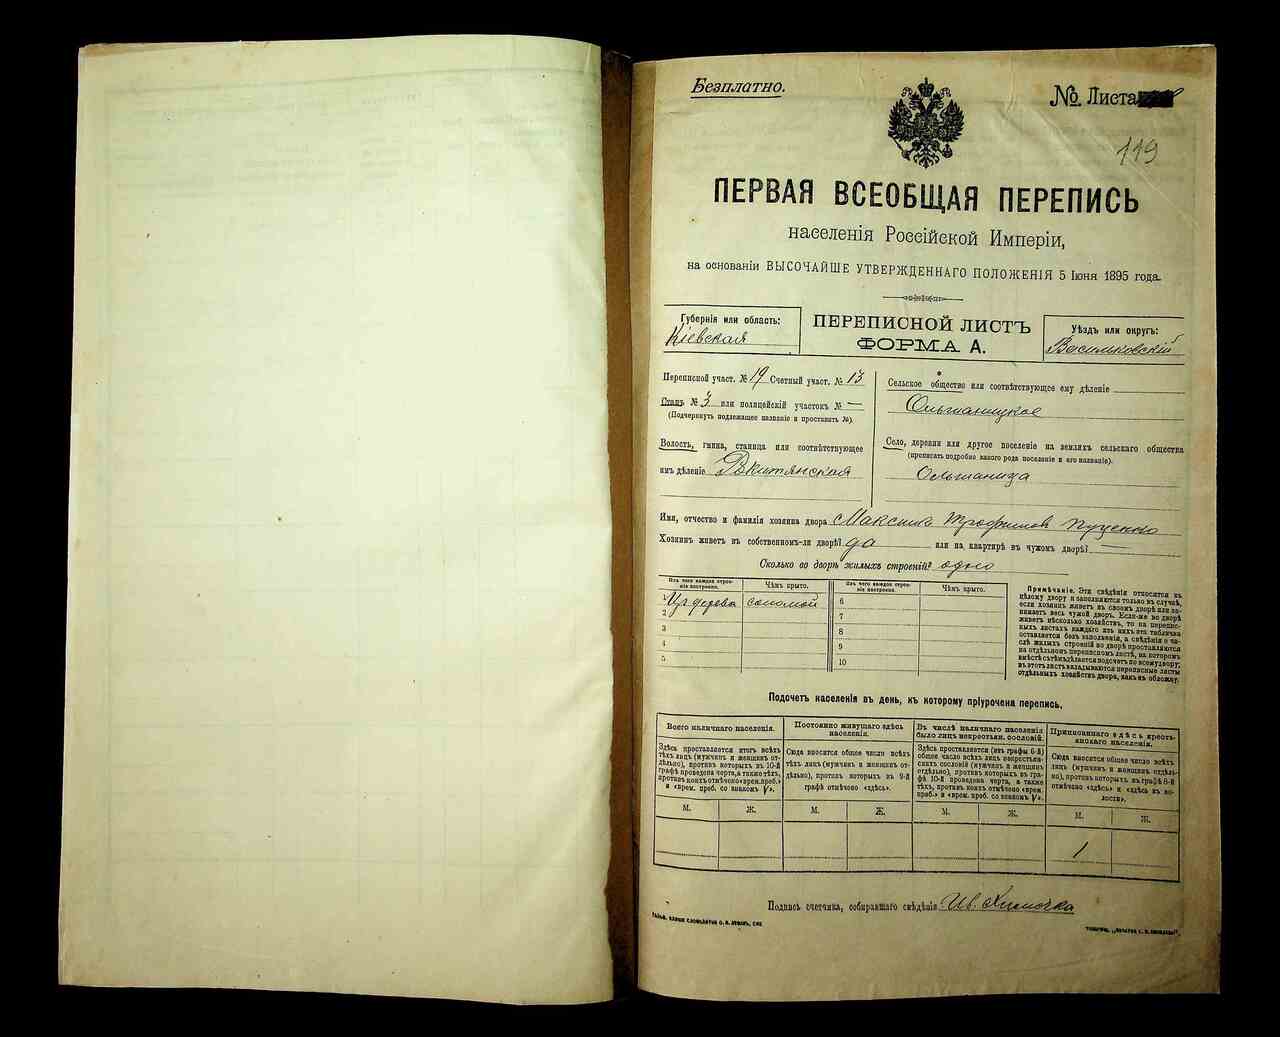 Безплатно.
№ Листа
119
ПЕРВАЯ ВСЕОБЩАЯ ПЕРЕПИСЬ
населенія Россійской Имперіи,
на основаніи ВЫСОЧАЙШЕ УТВЕРЖДЕННАГО ПОЛОЖЕНІЯ 5 Іюня 1895 года.
Губернія или область:
Кіевская
ПЕРЕПИСНОЙ ЛИСТЪ
ФОРМА А.
Уѣздъ или округъ:
Васильковскій
Переписной участ. № 19 Счетный участ. № 13
Станъ № 3 или полицейскій участокъ № —
(Подчеркнуть подлежащее названіе и проставить №).
Волость, гмина, станица или соотвѣтствующее
имъ дѣленіе Рокитянская
Сельское общество или соотвѣтствующее ему дѣленіе
Ольшаницкое
Село, деревня или другое поселеніе на земляхъ сельскаго общества
(прописать подробно какого рода поселеніе и его названіе).
Ольшаница
Имя, отчество и фамилія хозяина двора Максимъ Трофимовъ Пуценко
Хозяинъ живетъ въ собственномъ-ли дворѣ? да или на квартирѣ въ чужомъ дворѣ? —
Сколько во дворѣ жилыхъ строеній? одно
Изъ чего каждое строеніе построено.
Чѣмъ крыто.
Изъ чего каждое строеніе построено.
Чѣмъ крыто.
Изъ дерева соломой
2
3
4
5
6
7
8
9
10
Примѣчаніе. Эти свѣдѣнія относятся къ
цѣлому двору и заполняются только въ случаѣ,
если хозяинъ живетъ въ своемъ дворѣ или за-
нимаетъ весь чужой дворъ. Если-же во дворѣ
живетъ нѣсколько хозяйствъ, то на перепис-
ныхъ листахъ каждаго изъ нихъ эта табличка
оставляется безъ заполненія, а свѣдѣнія о чи-
слѣ жилыхъ строеній во дворѣ проставляются
на отдѣльномъ переписномъ листѣ, на которомъ
вмѣстѣ съ тѣмъ дѣлается подсчетъ по всему двору;
въ этотъ листъ вкладываются переписные листы
отдѣльныхъ хозяйствъ двора, какъ въ обложку.
Подсчетъ населенія въ день, къ которому пріурочена перепись.
Всего наличнаго населенія.
Здѣсь проставляется итогъ всѣхъ
тѣхъ лицъ (мужчинъ и женщинъ от-
дѣльно), противъ которыхъ въ 10-й
графѣ проведена черта, а также тѣхъ,
противъ коихъ отмѣчено «врем. преб.»
и «врем. преб. со знакомъ V».
Постоянно живущаго здѣсь
населенія.
Сюда вносится общее число всѣхъ
тѣхъ лицъ (мужчинъ и женщинъ от-
дѣльно), противъ которыхъ въ 9-й
графѣ отмѣчено «здѣсь».
Въ числѣ наличнаго населенія
было лицъ некрестьян. сословій.
Здѣсь проставляется (изъ графы 6-й)
общее число всѣхъ лицъ некрестьян-
скихъ сословій (мужчинъ и женщинъ
отдѣльно), противъ которыхъ въ гра-
фѣ 10-й проведена черта, а также
тѣхъ, противъ коихъ отмѣчено «врем.
преб.» и «врем. преб. со знакомъ V».
Приписаннаго здѣсь кресть-
янскаго населенія.
Сюда вносится общее число всѣхъ
лицъ (мужчинъ и женщинъ отдѣль-
но), противъ которыхъ въ графѣ 8-й
отмѣчено «здѣсь» и «здѣсь въ во-
лости».
М. Ж. М. Ж. М. Ж. М. Ж.
1
Подпись счетчика, собиравшаго свѣдѣнія Ив. Химочка